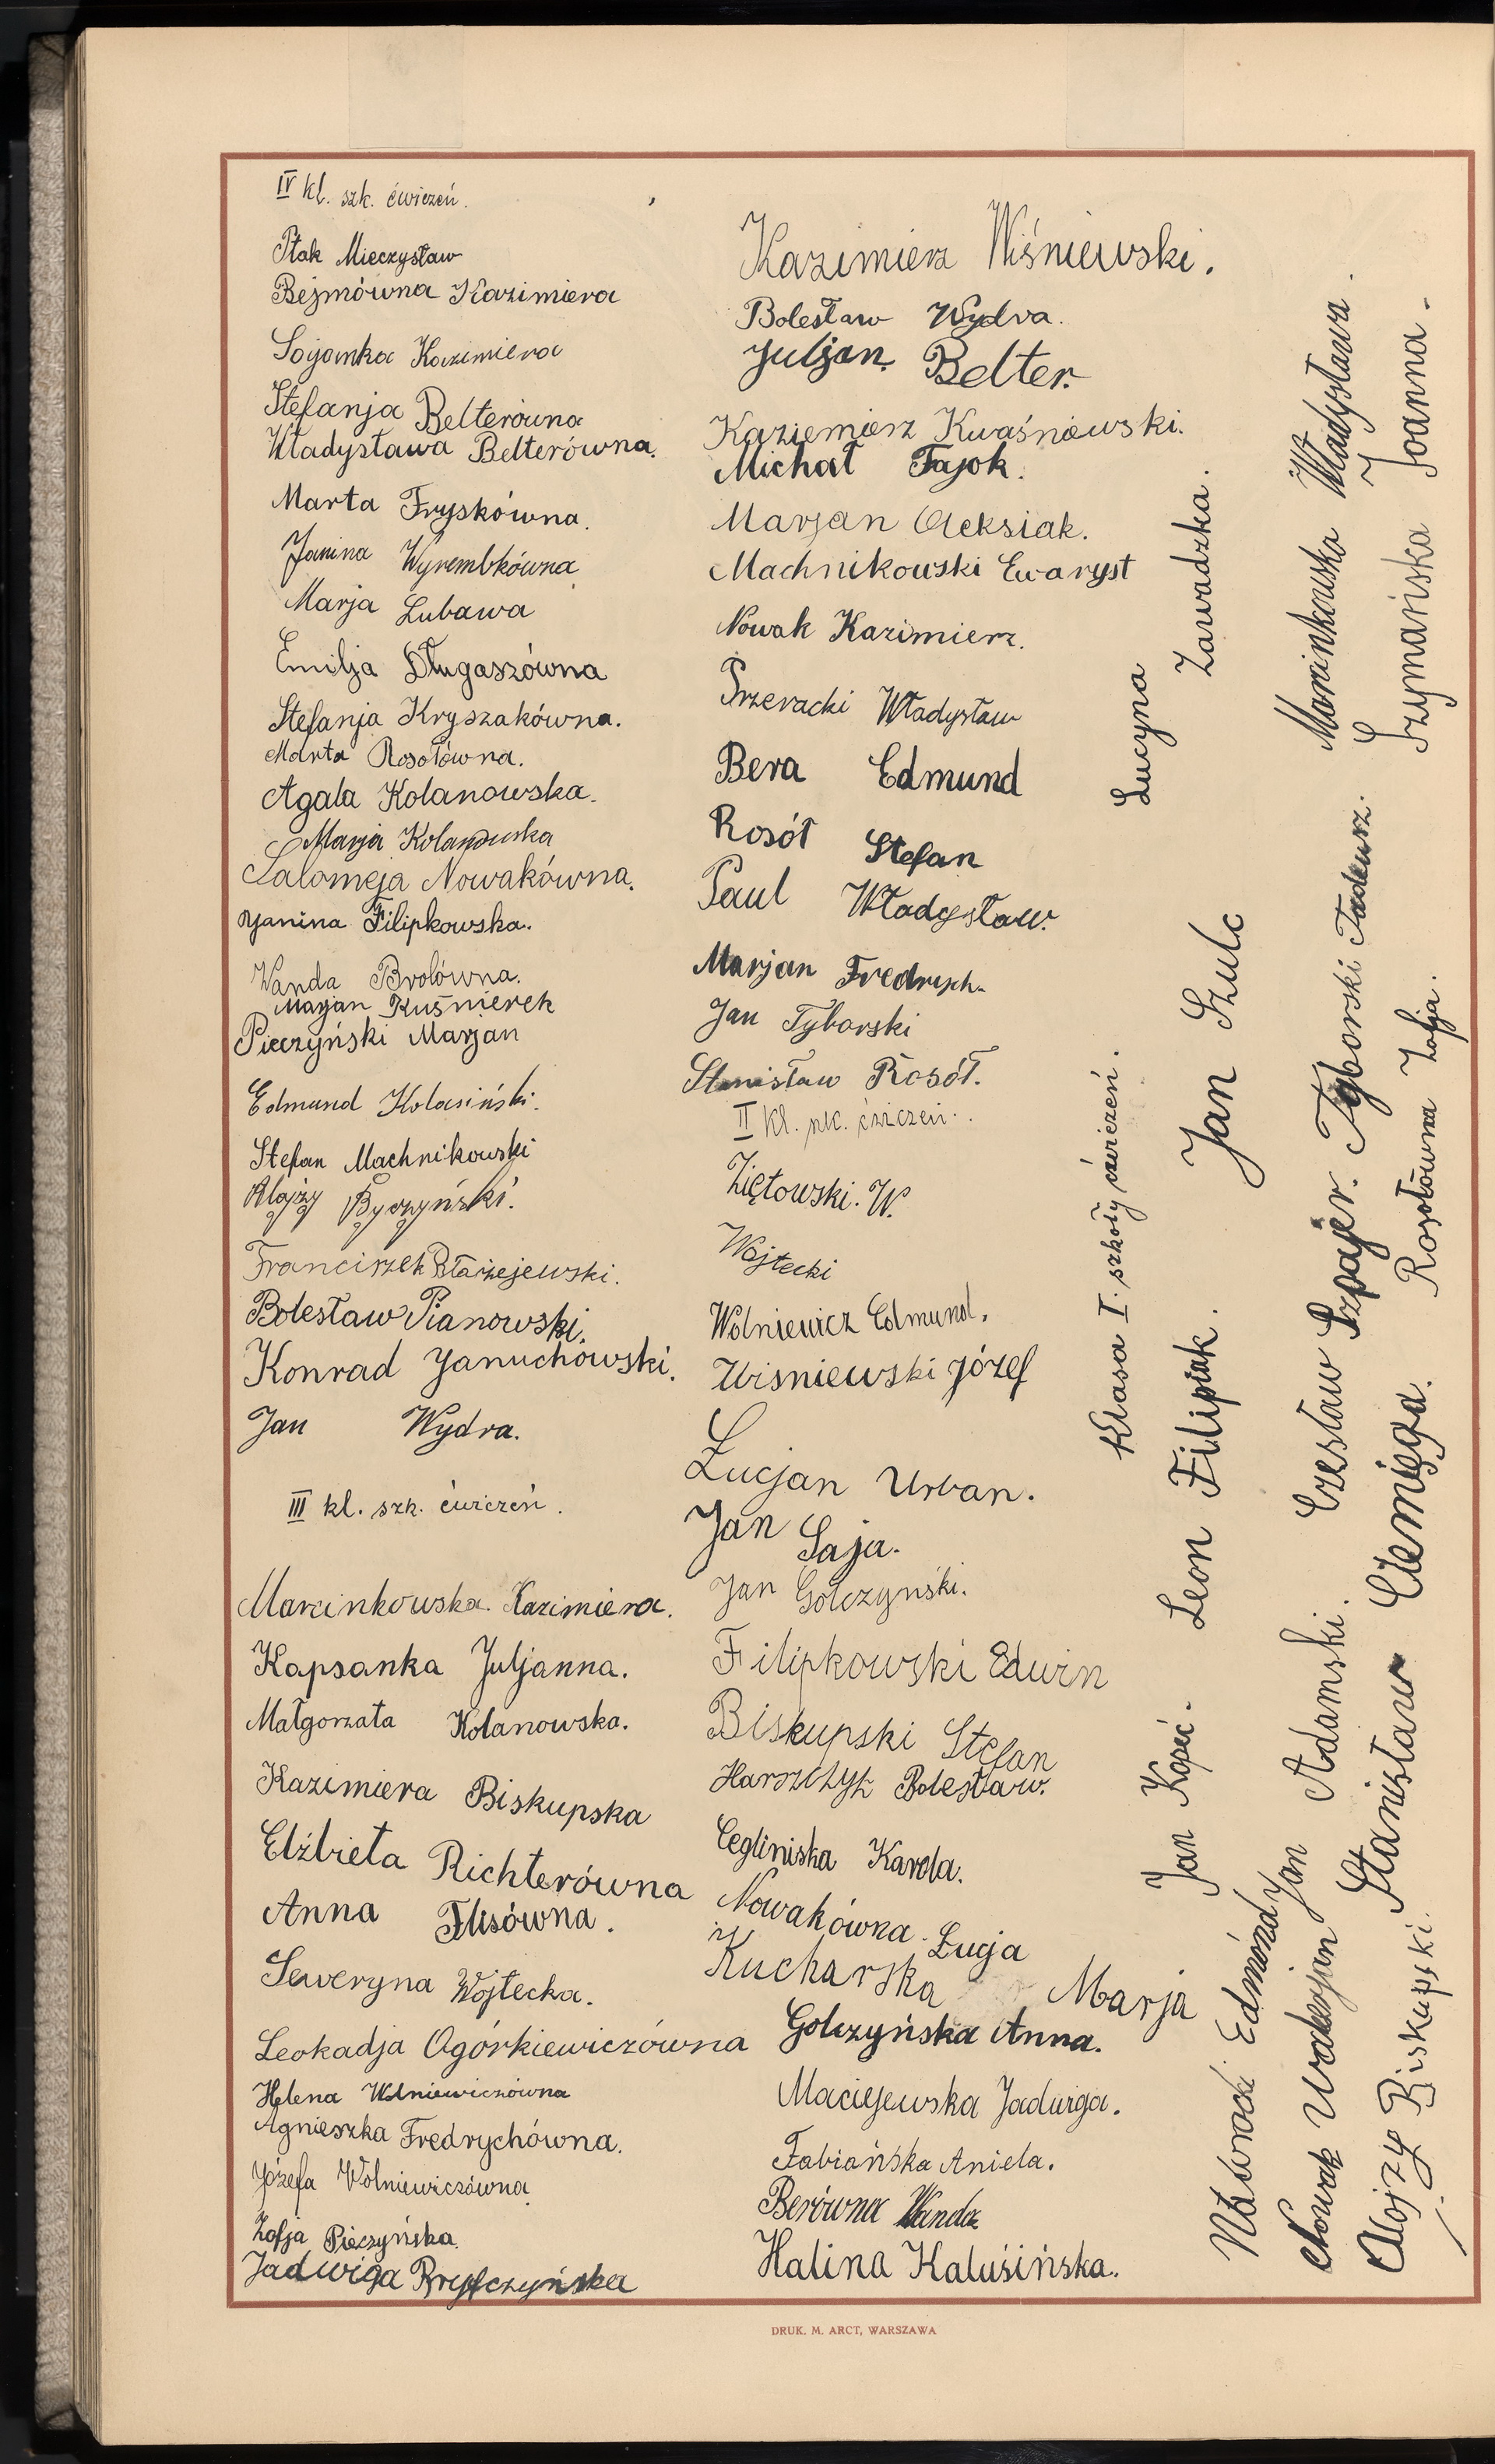 IV kl. szk. ćwiczeń.
Ptak Mieczysław
Bejmówna Kazimiera
Sojanka Kazimiera
Stefanja Belterówna
Władysława Belterówna.
Marta Fryskówna.
Janina Wyrembkówna
Marja Lubawa
Emilja Długaszówna
Stefanja Kryszakówna.
Marta Rosołówna.
Agata Kolanowska.
Marja Kolanowska
Salomeja Nowakówna.
Janina Filipkowska.
Wanda Brolówna.
Marjan Kuśnierek
Pieczyński Marjan
Edmund Kolasiński.
Stefan Machnikowski
Alojzy Byczyński.
Franciszek Błażejewski.
Bolesław Pianowski.
Konrad Januchowski.
Jan Wydra.
III kl. szk. ćwiczeń.
Marcinkowska Kazimiera.
Kapsanka Juljanna.
Małgorzata Kolanowska.
Kazimiera Biskupska
Elżbieta Richterówna
Anna Flisówna.
Seweryna Wojtecka.
Leokadja Ogórkiewiczówna
Helena Wolniewiczówna
Agnieszka Fredrychówna.
Józefa Wolniewiczówna
Zofja Pieczyńska.
Jadwiga
Kazimierz Wiśniewski.
Bolesław Wydra.
Juljan Belter.
Kaziemierz Kwaśniewski.
Michał Fajok.
Marjan Oleksiak.
Machnikowski Ewaryst
Nowak Kazimierz.
Przeracki Władysław
Bera Edmund
Rosół Stefan
Paul Władysław.
Marjan Fredrych.
Jan Tyborski
Stanisław Rosół.
II kl. szk. ćwiczeń.
Ziętowski. W.
Wojtecki
Wolniewicz Edmund.
Wisniewski Józef
Lucjan Urban.
Jan Saja.
Jan Golczynski.
Filipkowski Edwin
Biskupski Stefan
Harszczyk Bolesław.
Ceglinska Karola.
Nowakówna Łucja
Kucharska Marja
Golczyńska Anna.
Maciejewska Jadwiga.
Fabiańska Aniela.
Berówna Wanda
Halina Kalusińska.
Klasa I. szkoły ćwiczeń.
Lucyna Zawadzka.
Jan Kopeć. Leon Filipiak. Jan Szulc
Nawrocki Edmónd
Nowak Walerjan Jan Adamski. Czesław Szpajer. Tyborski Tadeusz. Marcinkowska Władysława.
Alojzy Biskupski. Stanisław Ciemięga. Rosołówna Zofja. Szymańska Joanna.